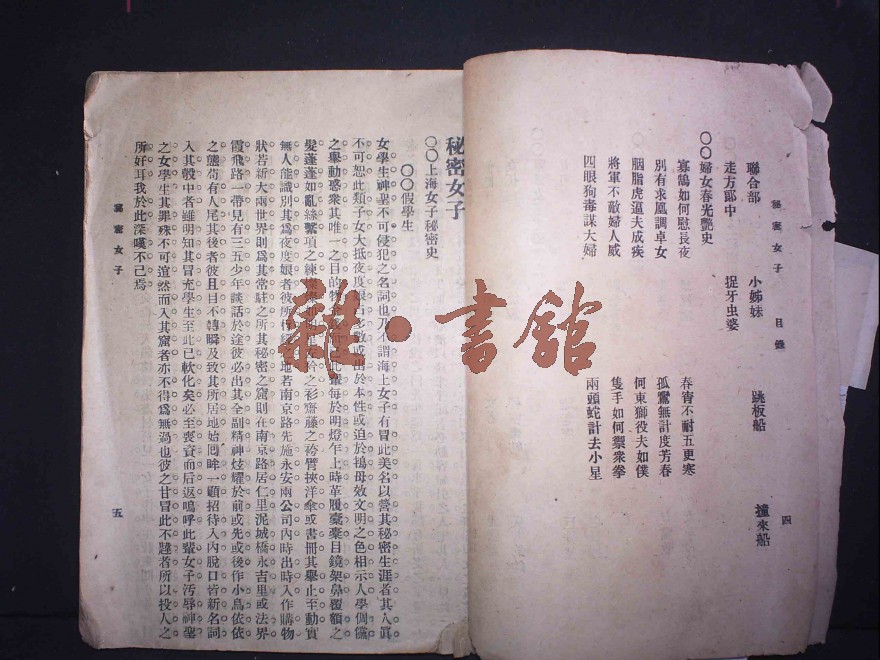 秘密女子 目錄
四
聯合部 小姊妹 跳板船 撞來船
走方郎中 捉牙虫婆
〇〇婦女春光艷史
寡鵠如何慰長夜 春宵不耐五更寒
別有求凰調卓女 孤鸞無計度芳春
胭脂虎逼夫成疾 何東獅役夫如僕
將軍不敵婦人威 隻手如何禦衆拳
四眼狗毒謀大婦 兩頭蛇計去小星
秘密女子
〇〇上海女子秘密史
〇〇假學生
女學生神聖不可侵犯之名詞也乃不謂海上女子有冒此美名以營其秘密生涯者其人眞
不可恕此類子女大抵夜度娘占多數或出於本性或迫於鴇母效文明之色相示人學倜儻
之舉動惑衆其唯一之目的物 此輩每於明燈乍上時革履橐橐目鏡架鼻覆額之
髮蓬蓬如亂絲繫項之練 之衫齋藤之袴臂挾洋傘或書冊其舉止至動實
無人能識別其爲夜度娘者彼所 之地若南京路先施永安兩公司內時出時入作購物
狀若新大兩世界則爲其常駐之所其秘密之窟則在南京路居仁里泥城橋永吉里或法界
霞飛路一帶見有三五少年談話於途彼必出其全副精神炫耀於前或先或後作小鳥依依
之態苟有人尾其後者彼且目不轉瞬及致其所居地始囘眸一顧招待入內脫口皆新名詞
入其彀中者雖明知其冒充學生至此已軟化矣必至喪資而后返嗚呼此輩女子汚辱神聖
之女學生其罪殊不可逭然而入其窟者亦不得爲無過也彼之甘冒此不韙者所以投人之
所好耳我於此深嘆不已焉
秘密女子
五
雜·書館